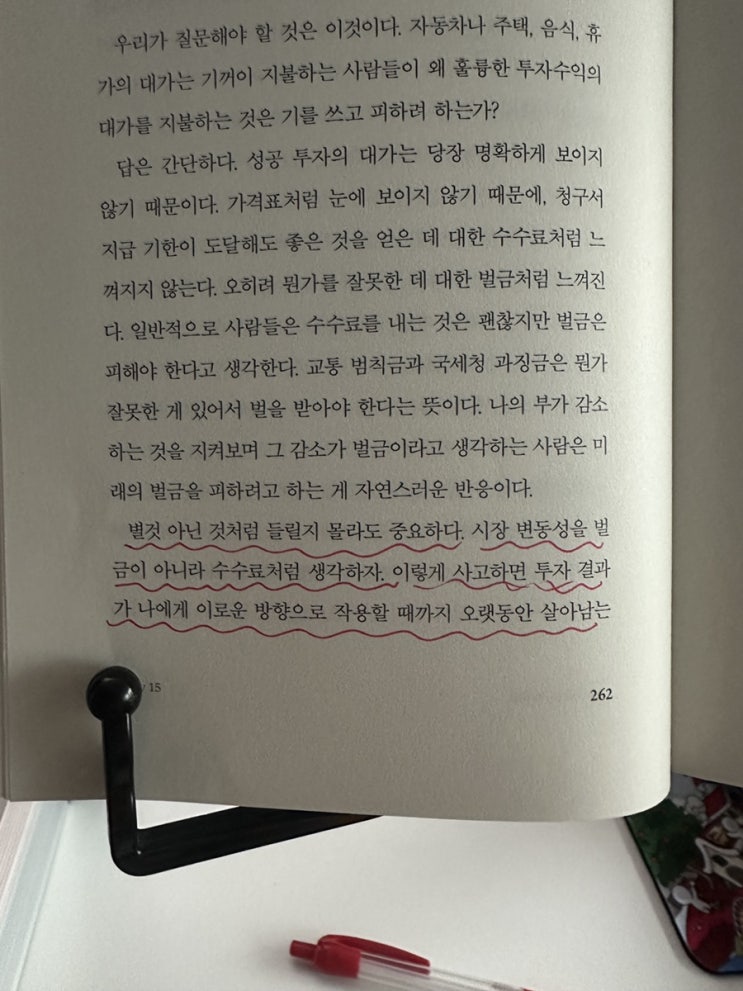 우리가 질문해야 할 것은 이것이다. 자동차나 주택, 음식, 휴
가의 대가는 기꺼이 지불하는 사람들이 왜 훌륭한 투자수익의
대가를 지불하는 것은 기를 쓰고 피하려 하는가?
답은 간단하다. 성공 투자의 대가는 당장 명확하게 보이지
않기 때문이다. 가격표처럼 눈에 보이지 않기 때문에, 청구서
지급 기한이 도달해도 좋은 것을 얻은 데 대한 수수료처럼 느
껴지지 않는다. 오히려 뭔가를 잘못한 데 대한 벌금처럼 느껴진
다. 일반적으로 사람들은 수수료를 내는 것은 괜찮지만 벌금은
피해야 한다고 생각한다. 교통 범칙금과 국세청 과징금은 뭔가
잘못한 게 있어서 벌을 받아야 한다는 뜻이다. 나의 부가 감소
하는 것을 지켜보며 그 감소가 벌금이라고 생각하는 사람은 미
래의 벌금을 피하려고 하는 게 자연스러운 반응이다.
별것 아닌 것처럼 들릴지 몰라도 중요하다. 시장 변동성을 벌
금이 아니라 수수료처럼 생각하자. 이렇게 사고하면 투자 결과
가 나에게 이로운 방향으로 작용할 때까지 오랫동안 살아남는
15
262